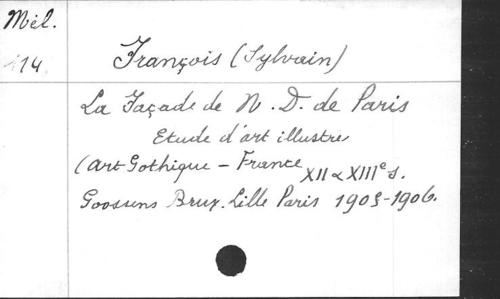 Mél.
114
François (Sylvain)
La Façade de N. D. de Paris
Etude d'art illustre
(art Gothique - France XII & XIIIe s.
Goossens Brux. Lille Paris 1905-1906.